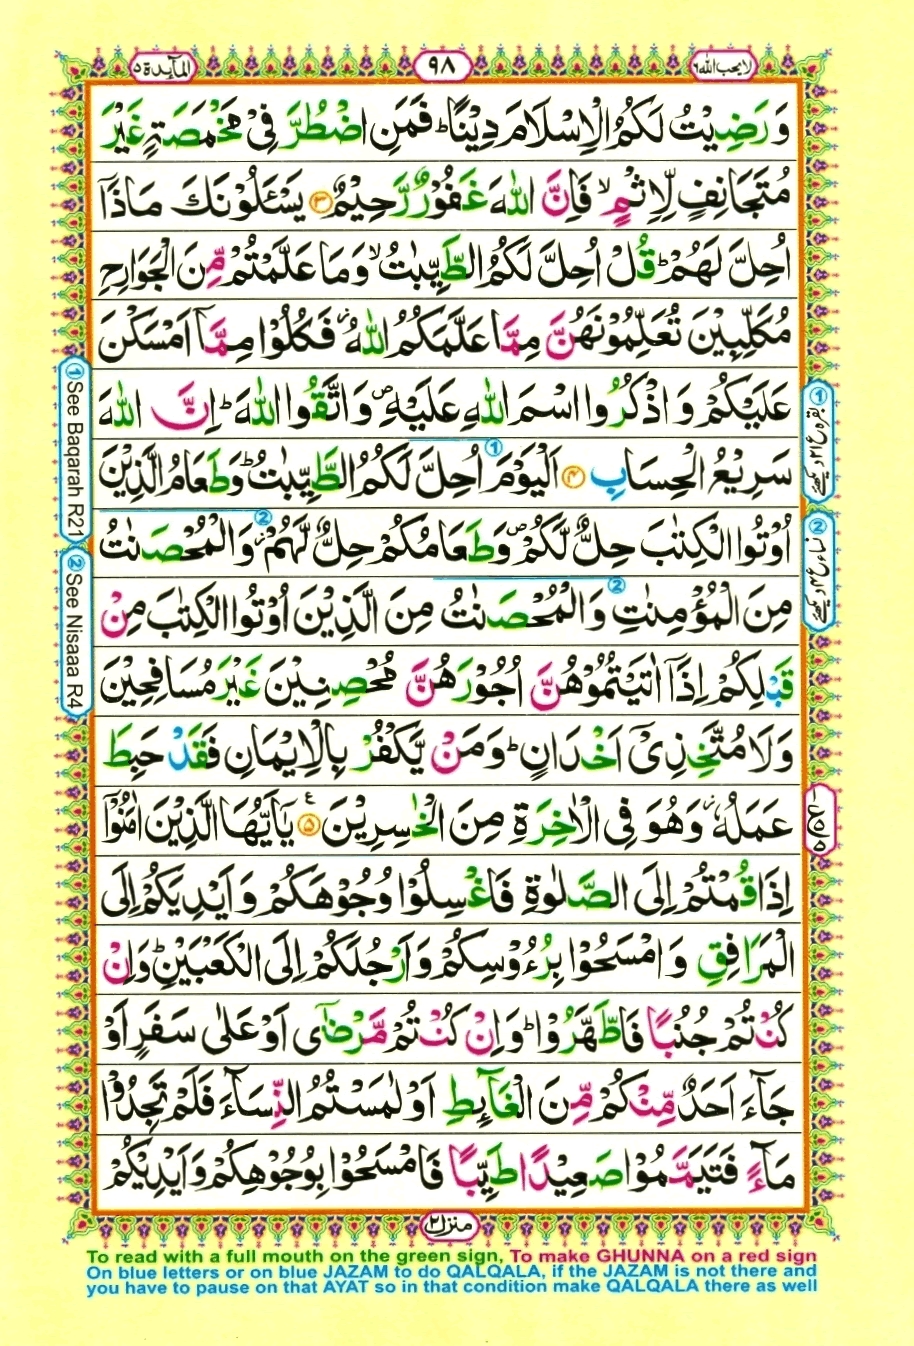 المآىِٕدة ٥
٩٨
لا یحب الله ٦
وَ رَضِیْتُ لَكُمُ الْاِسْلَامَ دِیْنًا ؕ فَمَنِ اضْطُرَّ فِیْ مَخْمَصَةٍ غَیْرَ
مُتَجَانِفٍ لِّاِثْمٍ ۙ فَاِنَّ اللّٰهَ غَفُوْرٌ رَّحِیْمٌ ﴿۳﴾ یَسْـَٔلُوْنَكَ مَاذَاۤ
اُحِلَّ لَهُمْ ؕ قُلْ اُحِلَّ لَكُمُ الطَّیِّبٰتُ ۙ وَ مَا عَلَّمْتُمْ مِّنَ الْجَوَارِحِ
مُكَلِّبِیْنَ تُعَلِّمُوْنَهُنَّ مِمَّا عَلَّمَكُمُ اللّٰهُ ؗ فَكُلُوْا مِمَّاۤ اَمْسَكْنَ
عَلَیْكُمْ وَ اذْكُرُوا اسْمَ اللّٰهِ عَلَیْهِ ۪ وَ اتَّقُوا اللّٰهَ ؕ اِنَّ اللّٰهَ
سَرِیْعُ الْحِسَابِ ﴿۴﴾ اَلْیَوْمَ اُحِلَّ لَكُمُ الطَّیِّبٰتُ ؕ وَ طَعَامُ الَّذِیْنَ
اُوْتُوا الْكِتٰبَ حِلٌّ لَّكُمْ ۪ وَ طَعَامُكُمْ حِلٌّ لَّهُمْ ؗ وَ الْمُحْصَنٰتُ
مِنَ الْمُؤْمِنٰتِ وَ الْمُحْصَنٰتُ مِنَ الَّذِیْنَ اُوْتُوا الْكِتٰبَ مِنْ
قَبْلِكُمْ اِذَاۤ اٰتَیْتُمُوْهُنَّ اُجُوْرَهُنَّ مُحْصِنِیْنَ غَیْرَ مُسَافِحِیْنَ
وَ لَا مُتَّخِذِیْۤ اَخْدَانٍ ؕ وَ مَنْ یَّكْفُرْ بِالْاِیْمَانِ فَقَدْ حَبِطَ
عَمَلُهٗ ؗ وَ هُوَ فِی الْاٰخِرَةِ مِنَ الْخٰسِرِیْنَ ﴿۵﴾ یٰۤاَیُّهَا الَّذِیْنَ اٰمَنُوْۤا
اِذَا قُمْتُمْ اِلَی الصَّلٰوةِ فَاغْسِلُوْا وُجُوْهَكُمْ وَ اَیْدِیَكُمْ اِلَی
الْمَرَافِقِ وَ امْسَحُوْا بِرُءُوْسِكُمْ وَ اَرْجُلَكُمْ اِلَی الْكَعْبَیْنِ ؕ وَ اِنْ
كُنْتُمْ جُنُبًا فَاطَّهَّرُوْا ؕ وَ اِنْ كُنْتُمْ مَّرْضٰۤی اَوْ عَلٰی سَفَرٍ اَوْ
جَآءَ اَحَدٌ مِّنْكُمْ مِّنَ الْغَآىِٕطِ اَوْ لٰمَسْتُمُ النِّسَآءَ فَلَمْ تَجِدُوْا
مَآءً فَتَیَمَّمُوْا صَعِیْدًا طَیِّبًا فَامْسَحُوْا بِوُجُوْهِكُمْ وَ اَیْدِیْكُمْ
منزل ٢
① See Baqarah R21
② See Nisaaa R4
To read with a full mouth on the green sign, To make GHUNNA on a red sign
On blue letters or on blue JAZAM to do QALQALA, if the JAZAM is not there and
you have to pause on that AYAT so in that condition make QALQALA there as well